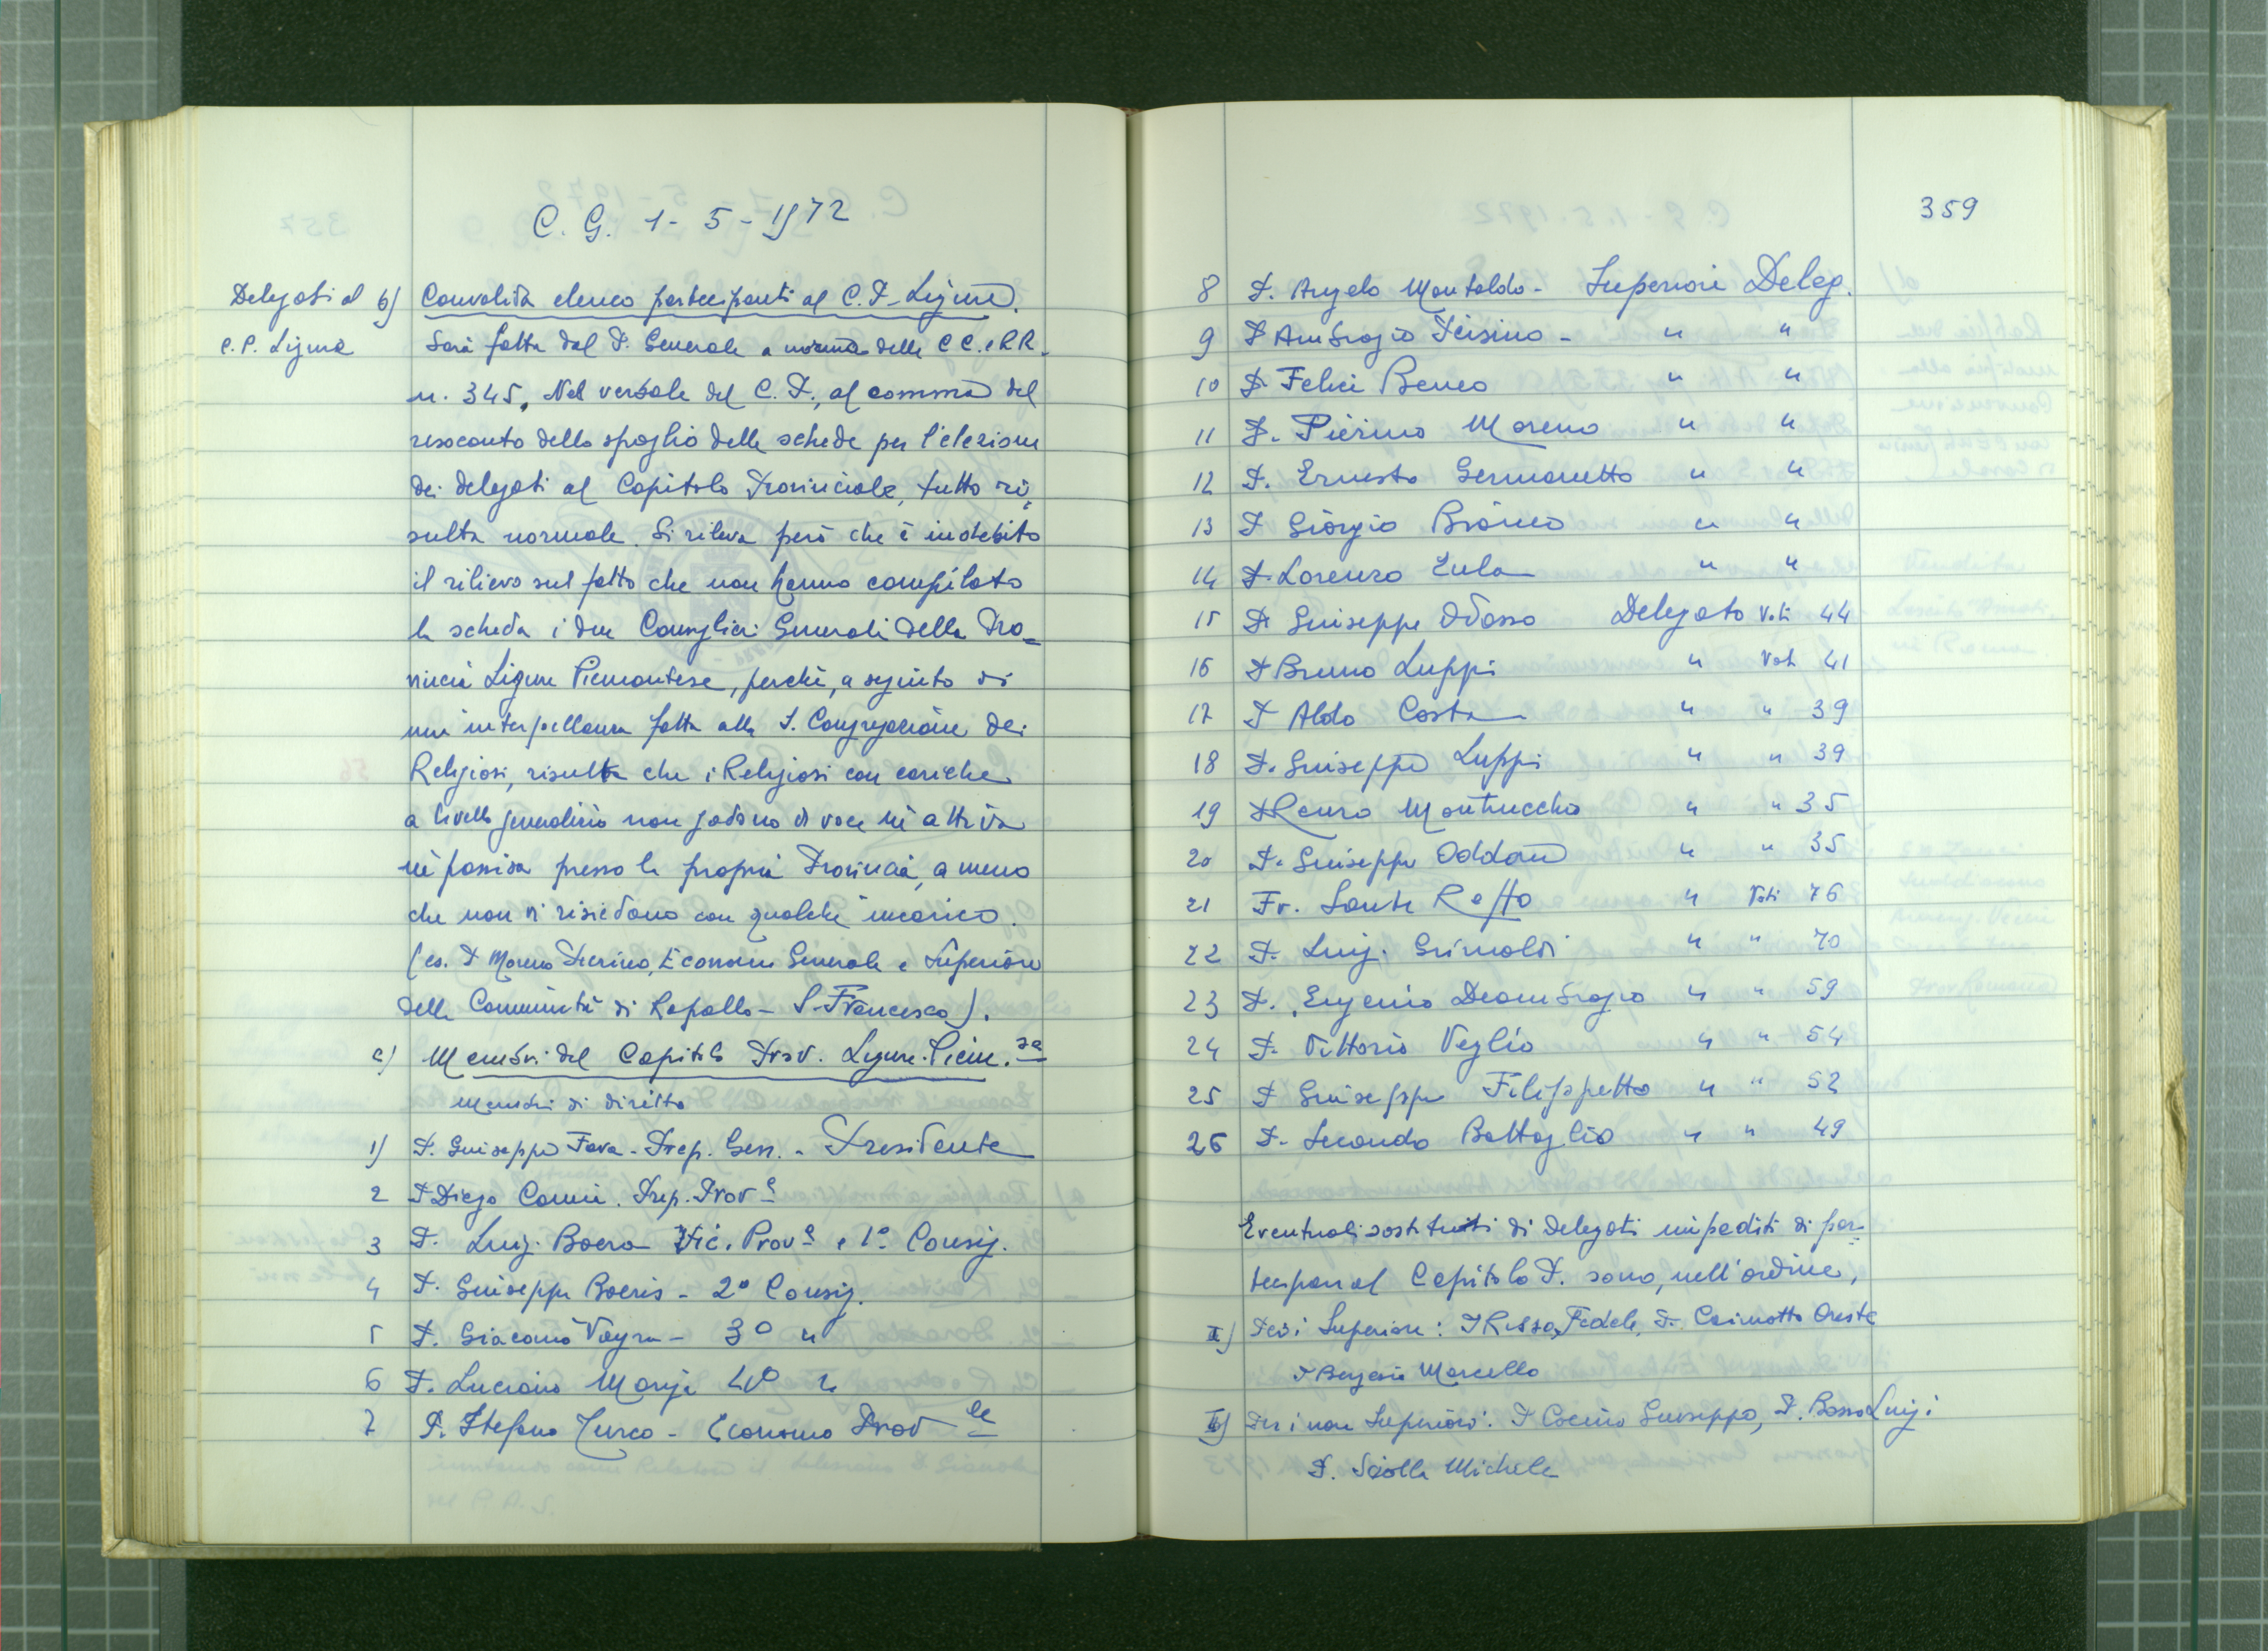 C. G. 1 - 5 - 1972
Delegati al b) Convalida elenco partecipanti al C. P. Ligure.
C. P. Ligure Sarà fatta dal P. Generale a norma delle CC. e RR.
n. 345. Nel verbale del C. P., al comma del
resoconto dello spoglio delle schede per l'elezione
dei delegati al Capitolo Provinciale, tutto ri=
sulta normale. Si rileva però che è indebito
il rilievo sul fatto che non hanno compilato
la scheda i due Consiglieri Generali della Pro=
vincia Ligure Piemontese, perché, a seguito di
un'interpellanza fatta alla S. Congregazione dei
Religiosi, risulta che i Religiosi con cariche
a livello generalizio non godono di voce né attiva
né passiva presso la propria Provincia, a meno
che non vi risiedano con qualche incarico.
(es. P Moreno Pierino, Economo Generale e Superiore
della Comunità di Rapallo - S. Francesco).
c) Membri del Capitolo Prov. Ligure. Piem.se
Membri di diritto
1) P. Giuseppe Fava - Prep. Gen. - Presidente
2 P Diego Camia. Prep. Prov.e
3 P. Luigi Boero Vic. Prov.e e 1° Consig.
4 P. Giuseppe Boeris - 2° Consig.
5 P. Giacomo Vayra - 3° "
6 P. Luciano 4° "
7 P. Stefano Turco - Economo Prov le
359
8 P. Angelo Montaldo - Superiori Deleg.
9 P Ambrogio Pisino - " "
10 P. Felice Beneo " "
11 P. Pierino Moreno " "
12 P. Ernesto Germanetto " "
13 P Giorgio Bianco " "
14 P. Lorenzo Eula " "
15 P. Giuseppe Odasso Delegato Voti 44
16 P Bruno Luppi " Voti 41
17 P Aldo Costa " " 39
18 P. Giuseppe Luppi " " 39
19 P Renzo Montrucchio " " 35
20 P. Giuseppe Oddone " " 35
21 Fr. Sante Raffo " Voti 76
22 P. Luigi Grimaldi " " 70
23 P. Eugenio Deambrogio " " 59
24 P. Vittorio Veglio " " 54
25 P Giuseppe Filippetto " " 52
26 P. Secondo Battaglio " " 49
Eventuali sostituti di Delegati impediti di par=
tecipare al Capitolo P. sono, nell'ordine,
I) Per i Superiori: P Risso Fedele, P. Caimotto Oreste
P Marcello
II) Per i non Superiori: P Giuseppe, P. Bosso Luigi
P. Sciolla Michele